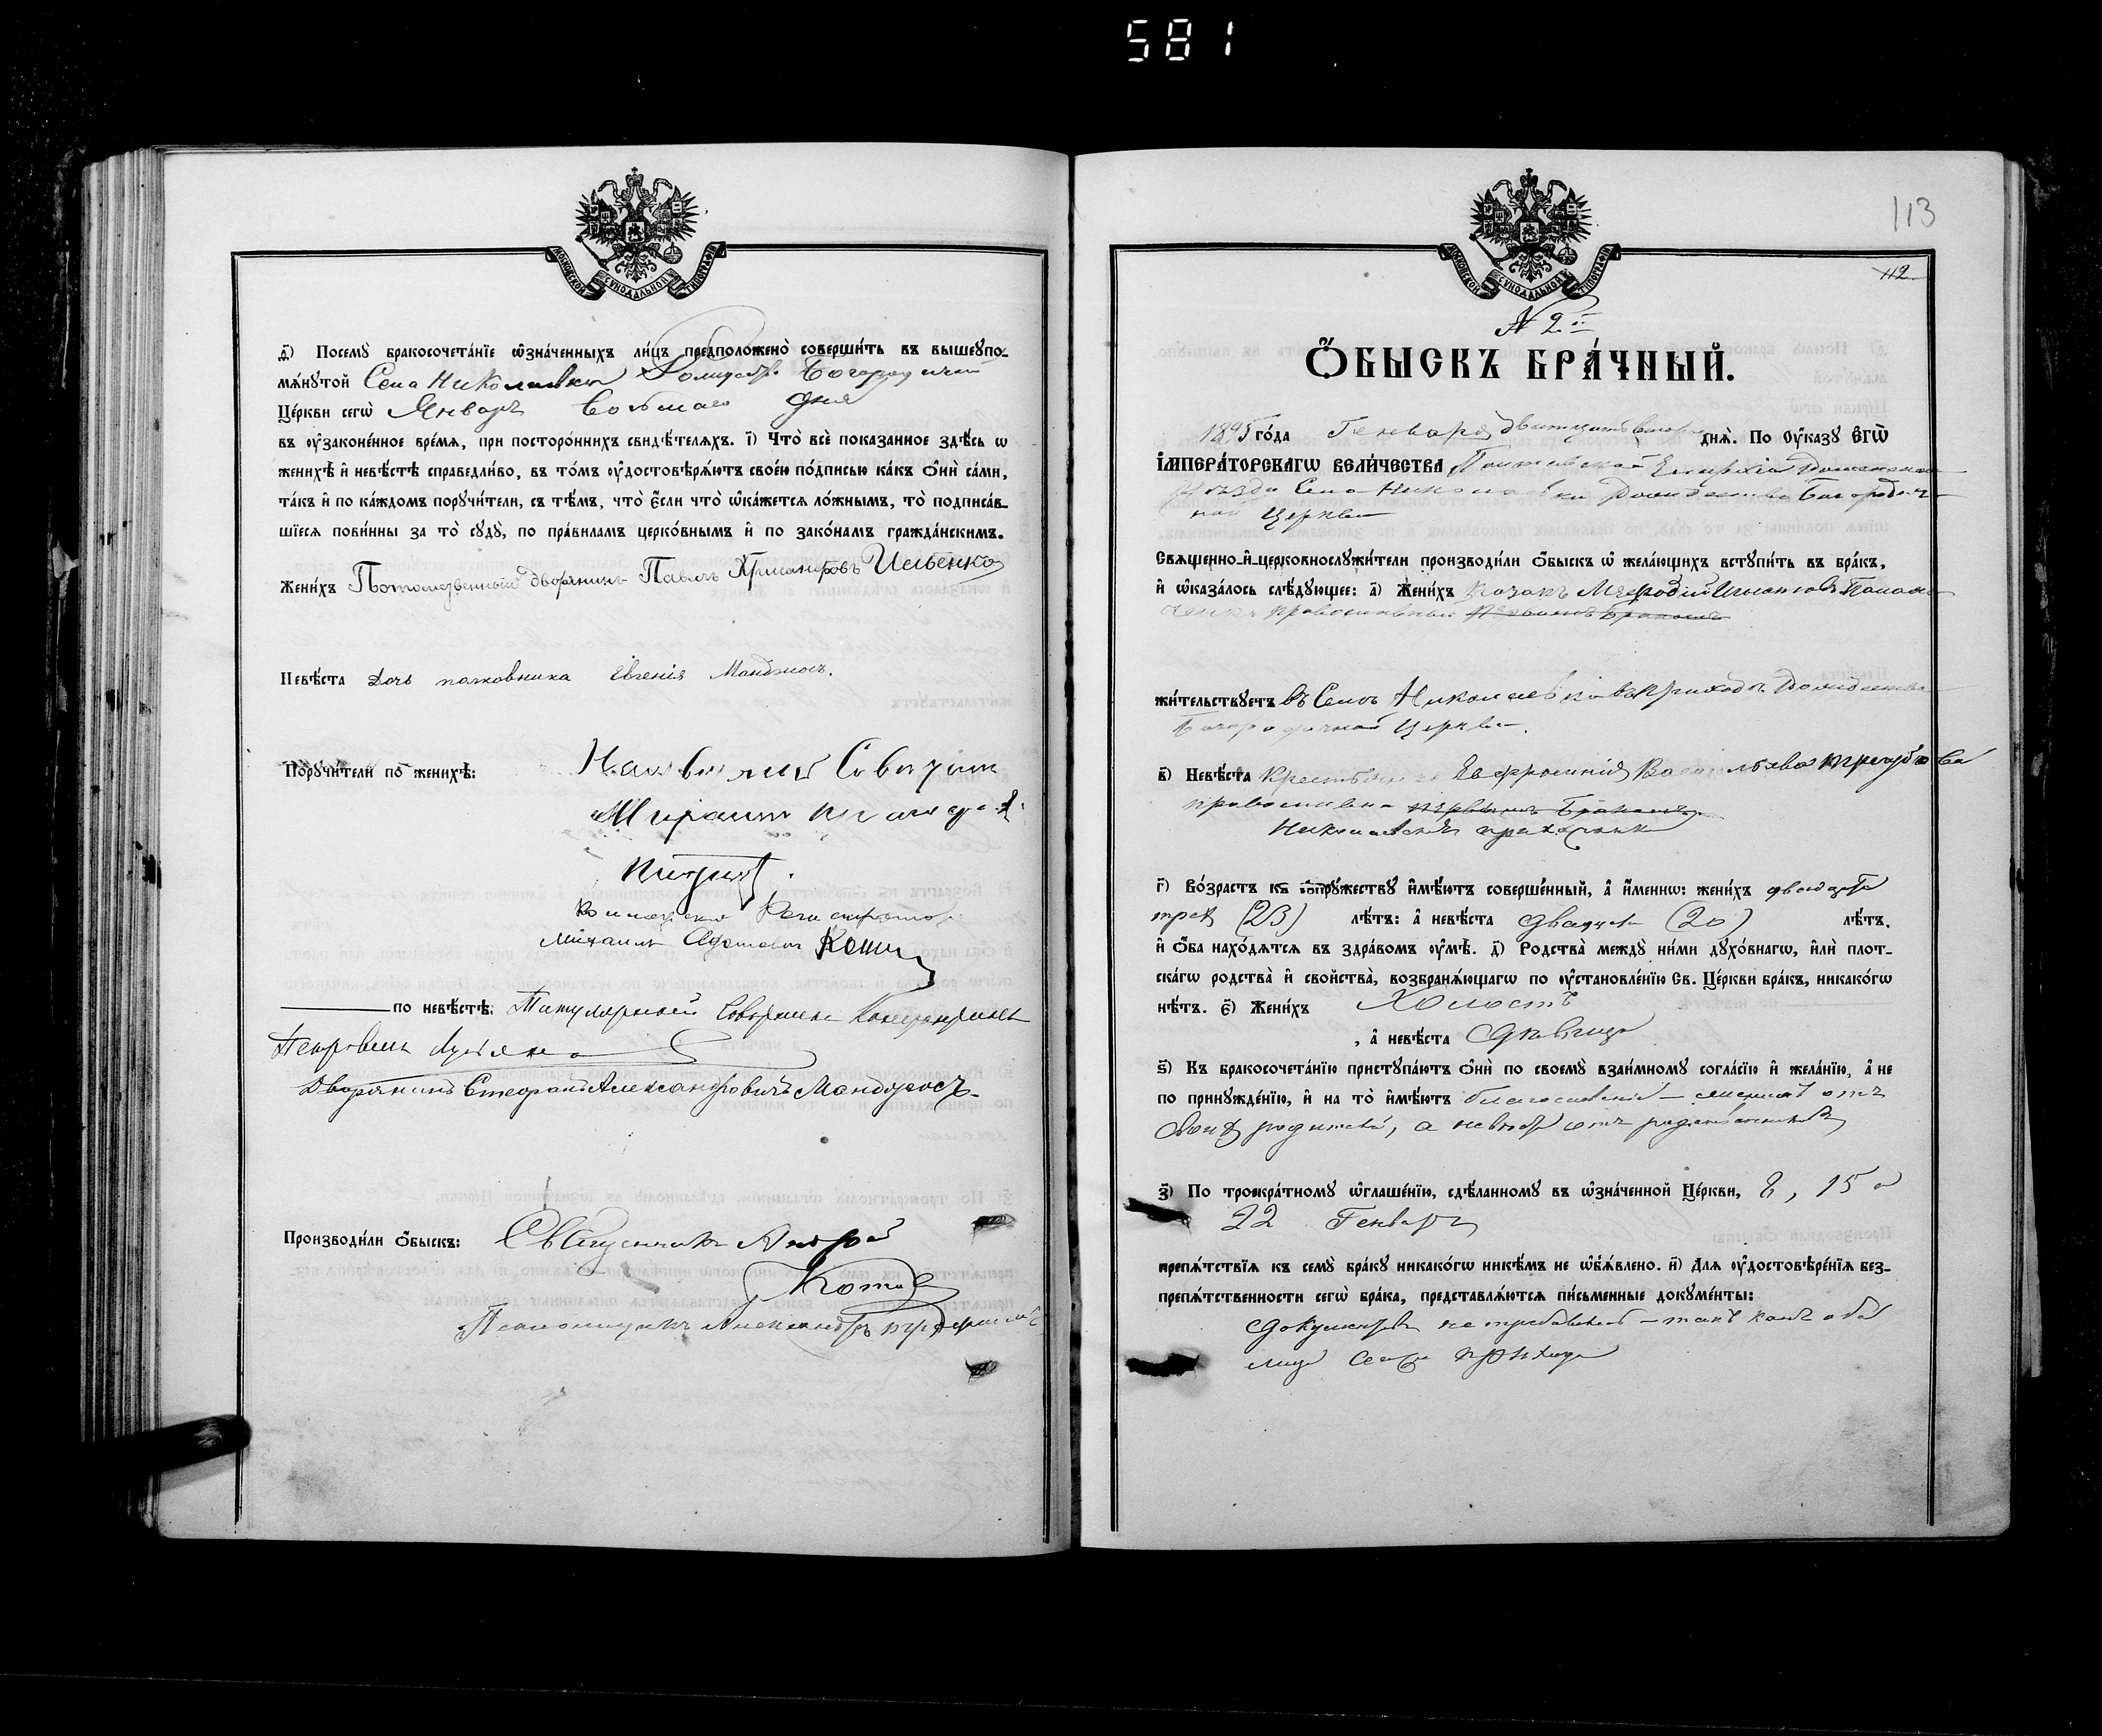 581
МОСКОВСКОЙ СѴНОДАЛЬНОЙ ТИПОГРАФІИ
д҃) Посемꙋ̀ бракосочета́нїе ѡ҆зна́ченныхъ ли́цъ предположено̀ соверши́ть въ вышеꙋпо-
мѧ́нꙋтой Села Николаевки Рождество Богородичной
Це́ркви сегѡ̀ Январь восьмаго дня
въ ᲂу҆законе́нное вре́мѧ, при посторо́ннихъ свидѣ́телѧхъ. і҃) Что̀ всѐ показанное здѣ́сь ѡ
женихѣ̀ и҆ невѣ́стѣ справедли́во, въ то́мъ ᲂу҆достовѣрѧ́ютъ свое́ю по́дписью ка́къ ѻ҆нѝ са́ми,
та́къ и҆ по ка́ждомъ порꙋчи́тели, съ тѣ́мъ, что̀ є҆́сли что̀ ѡ҆ка́жетсѧ ло́жнымъ, то̀ подписа́в-
шїесѧ пови́нны за то̀ сꙋдꙋ̀, по пра́виламъ церко́внымъ и҆ по зако́намъ гражда́нскимъ.
Жени́хъ Потомственный дворянинъ Павелъ Хрисанфовъ Ильенко
Невѣ́ста Дочь полковника Евгенія Манджосъ.
Порꙋчи́тели по женихѣ̀:
Надворный Советник
Коллежский Регистратор
Михаилъ
по невѣ́стѣ: Титулярный Советникъ
Петровичъ
Дворянинъ Стефанъ Александровичъ Манджосъ
Производи́ли ѻ҆́быскъ: Священникъ Андрей
Котов
Псаломщикъ Александръ
МОСКОВСКОЙ СѴНОДАЛЬНОЙ ТИПОГРАФІИ
113
112
№ 2й
Ѻ҆́БЫСКЪ БРА́ЧНЫЙ.
1895 го́да Генваря двадцать втораго днѧ̀. По ᲂу҆ка́зꙋ Є҆ГѠ̀
І҆МПЕРА́ТОРСКАГѠ ВЕЛИ́ЧЕСТВА Полтавской Епархіи
Уезда Села Николаевки Рождество Богородич-
ной Церкви
Свѧщенно-и҆-церковнослꙋжи́тели производи́ли ѻ҆́быскъ ѡ҆ жела́ющихъ встꙋпи́ть въ бра́къ,
и҆ ѡ҆каза́лось слѣ́дꙋющее: а҃) Жени́хъ Козакъ Мефодій Игнатовъ
православный первымъ бракомъ
жи́тельствꙋетъ въ Селѣ Николаевка въ приходѣ Рождество
Богородичной Церкви.
в҃) Невѣ́ста Крестьянка Евфросинія Васильева
православна первымъ бракомъ
Николаевской прихожанка
г҃) Во́зрастъ къ сꙋпрꙋ́жествꙋ и҆мѣ́ютъ соверше́нный, а҆ и҆́менно: жени́хъ двадцать
трех (23) лѣ́тъ: а҆ невѣ́ста двадцать (20) лѣ́тъ.
и҆ ѻ҆́ба нахо́дѧтсѧ въ здра́вомъ ᲂу҆мѣ̀. д҃) Родства̀ междꙋ̀ ни́ми дꙋхо́внагѡ, и҆лѝ плот-
ска́гѡ родства̀ и҆ сво́йства̀, возбранѧ́ющагѡ по ᲂу҆становле́нїю Св. Це́ркви бра́къ, никако́гѡ
нѣ́тъ. є҃) Жени́хъ Холостъ
, а҆ невѣ́ста девица
ѕ҃) Къ бракосочета́нїю пристꙋпа́ютъ ѻ҆нѝ по своемꙋ̀ взаи́мномꙋ согла́сїю и҆ жела́нїю, а҆ не
по принꙋжде́нїю, и҆ на то̀ и҆мѣ́ютъ благословеніе – женихъ отъ
своих родителей, а невеста отъ родственниковъ
з҃) По троекра́тномꙋ ѡ҆глаше́нїю, сдѣ́ланномꙋ въ ѡ҆зна́ченной Це́ркви, 8, 15 и
22 Генваря
препѧ́тствїѧ къ семꙋ̀ бра́кꙋ никако́гѡ никѣ́мъ не ѡ҆б̾ѧ́влено. и҃) Длѧ ᲂу҆достовѣре́нїѧ без-
препѧ́тственности сегѡ̀ бра́ка, представлѧ́ютсѧ пи́сьменные докꙋме́нты:
документов не требовалось – такъ какъ оба
лица сего прихода